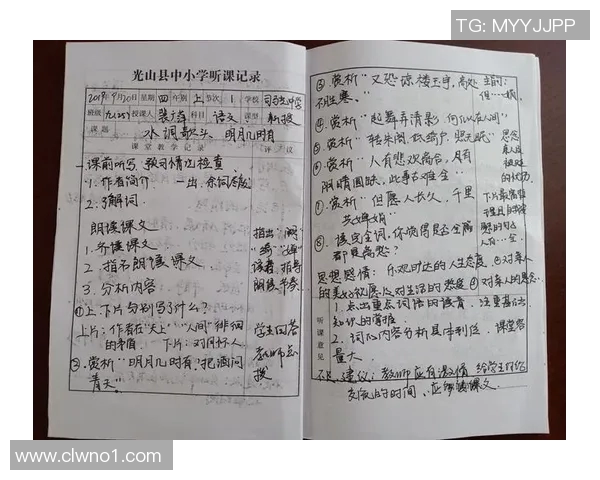 TG: MYYJJPP
光山县中小学听课记录
2019年9月20日 星期 四 年级 上 节次 1 学校
班级 九(25) 授课人 科目 语文 课型 新授
课题 水调歌头·明月几时有
课堂教学记录 评议
一、课前听写、预习情况检查
1. 作者简介
2. 了解词
朗读课文
1. 齐读课文
2. 指名朗读课文
3. 分析内容
指出“阙”
“绮”“婵”
读音,指导
朗读、节奏
①上、下片分别写了什么?
上片:作者在“天上”“人间”徘徊
的矛盾 下片:对月怀人
②赏析“明月几时有,把酒问
青天”
学生回答
教师点
拨
③赏析“又恐琼楼玉宇,高处
不胜寒。”
④赏析“起舞弄清影,何似在人间”
⑤赏析“转朱阁,低绮户,照无眠”
⑥赏析“人有悲欢离合,月有
阴晴圆缺,此事古难全”
⑦赏析“但愿人长久,千里
共婵娟”
⑧读完全词,你觉得是否全篇
都是离愁?
思想感情:乐观旷达的人生态度 对亲人
的美好祝愿 对生活的热爱 对亲人的思念
听课意见
1. 点出重点词语的读音,注重基础
知识的掌握
2. 词的内容分析具体到位,课堂容
量大。
建议:教师应有激情 给学生
交流的时间、应 课文
www.clwno1.com